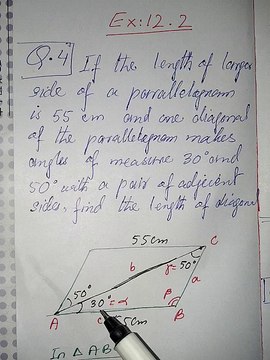 Ex:12.2
Q.4 If the length of larger
side of a parrallelogram
is 55 cm and one diagonal
of the parallelogram makes
angles of measure 30° and
50° with a pair of adjecent
sides, find the length of diagonal
55cm
C
b
γ=50°
a
50°
30°=α
β
A
B
In △ AB